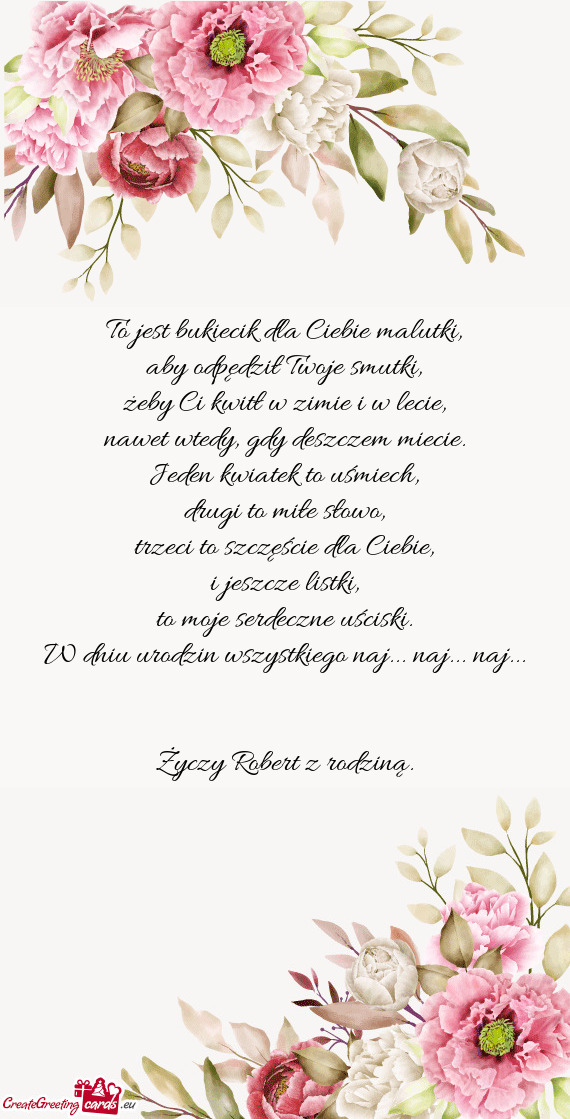 To jest bukiecik dla Ciebie malutki,
aby odpędził Twoje smutki,
żeby Ci kwitł w zimie i w lecie,
nawet wtedy, gdy deszczem miecie.
Jeden kwiatek to uśmiech,
drugi to miłe słowo,
trzeci to szczęście dla Ciebie,
i jeszcze listki,
to moje serdeczne uściski.
W dniu urodzin wszystkiego naj... naj... naj...
Życzy Robert z rodziną.
CreateGreeting cards .eu